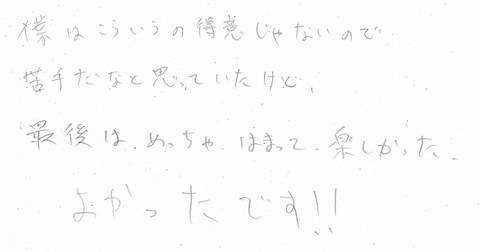 僕はこういうの得意じゃないので
苦手だなと思っていたけど、
最後は、めっちゃ、はまって、楽しかった、
よかったです!!